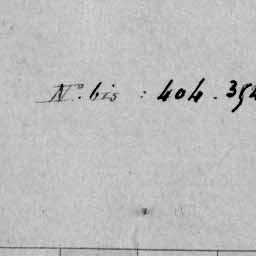 N°. bis : 404. 394